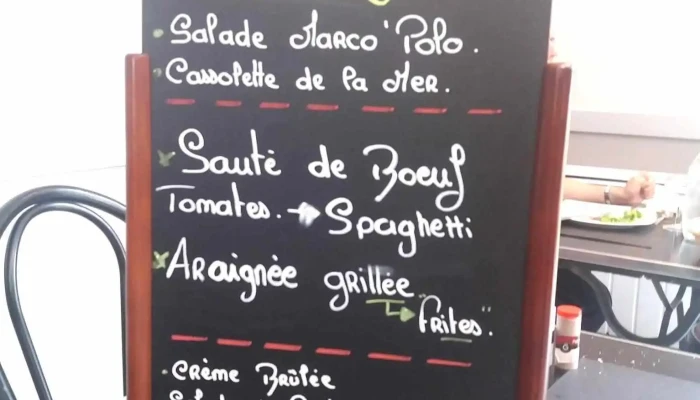 Salade Marco' Polo.
Cassolette de la Mer.
Sauté de Boeuf
Tomates. → Spaghetti
Araignée grillée
→ "frites".
Crème Brûlée